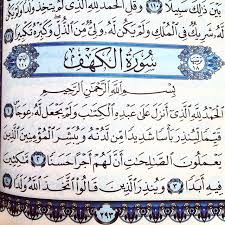 بَيْنَ ذَٰلِكَ سَبِيلًا ١١٠ وَقُلِ الْحَمْدُ لِلَّهِ الَّذِي لَمْ يَتَّخِذْ وَلَدًا وَلَمْ يَكُن
لَّهُ شَرِيكٌ فِي الْمُلْكِ وَلَمْ يَكُن لَّهُ وَلِيٌّ مِّنَ الذُّلِّ وَكَبِّرْهُ تَكْبِيرًا
سُورَةُ الْكَهْفِ
بِسْمِ اللَّهِ الرَّحْمَٰنِ الرَّحِيمِ
الْحَمْدُ لِلَّهِ الَّذِي أَنزَلَ عَلَىٰ عَبْدِهِ الْكِتَابَ وَلَمْ يَجْعَل لَّهُ عِوَجًا
قَيِّمًا لِّيُنذِرَ بَأْسًا شَدِيدًا مِّن لَّدُنْهُ وَيُبَشِّرَ الْمُؤْمِنِينَ الَّذِينَ
يَعْمَلُونَ الصَّالِحَاتِ أَنَّ لَهُمْ أَجْرًا حَسَنًا ٢ مَّاكِثِينَ
فِيهِ أَبَدًا ٣ وَيُنذِرَ الَّذِينَ قَالُوا اتَّخَذَ اللَّهُ وَلَدًا
٢٩٣